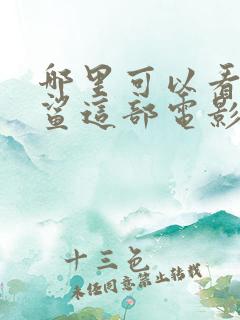 哪里可以看
鲨這部電影
十三色
未经同意禁止转载